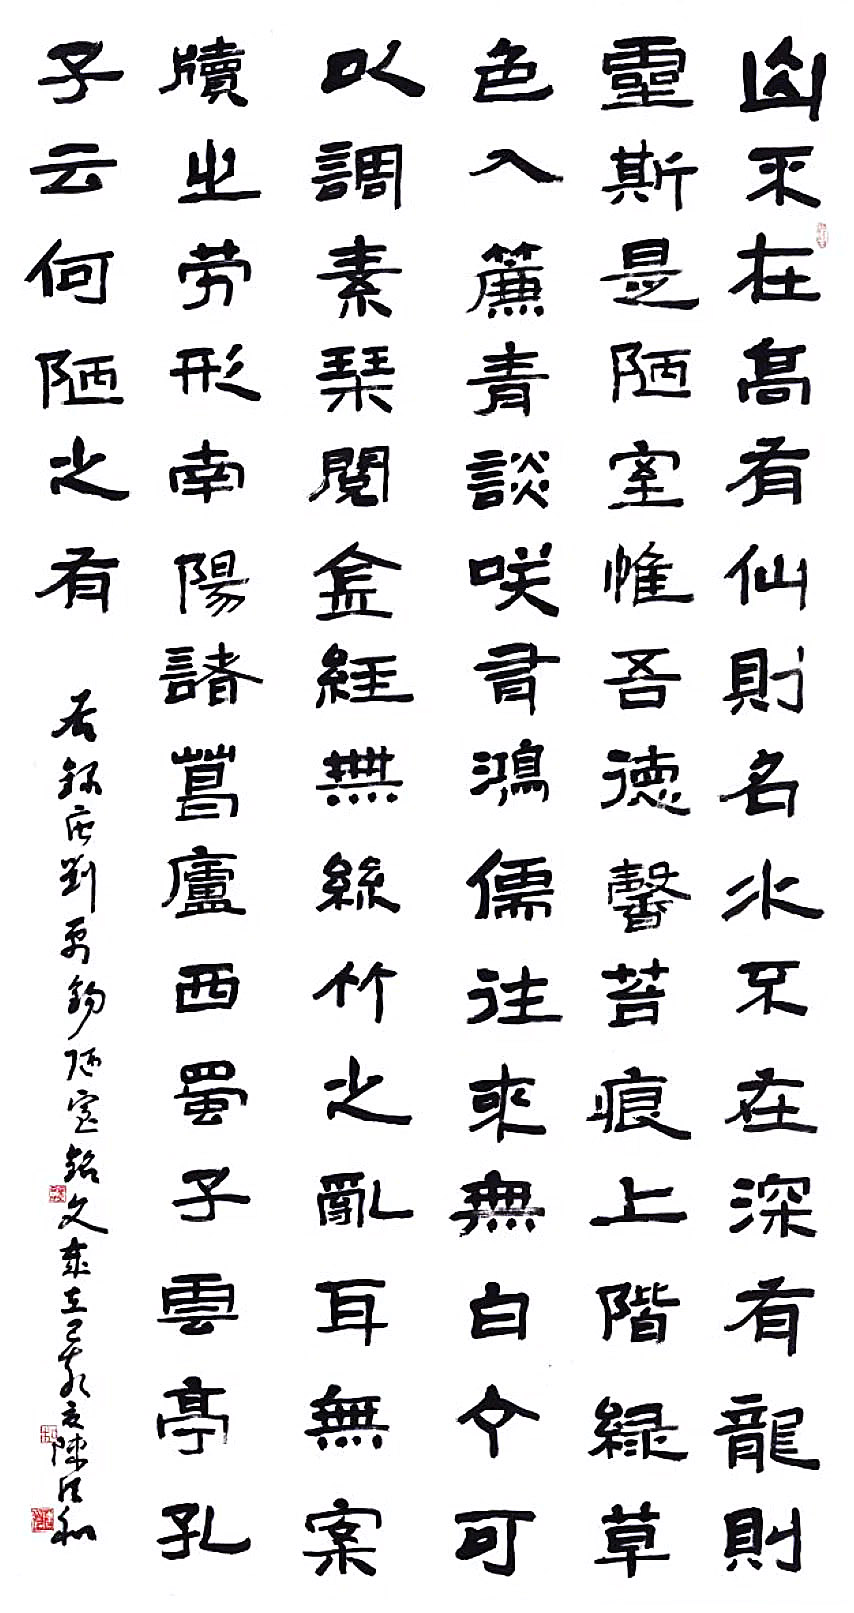 山不在高有仙則名水不在深有龍則
靈斯是陋室惟吾德馨苔痕上階緑草
色入簾青談咲有鴻儒往來無白丁可
以調素琴閱金經無絲竹之亂耳無案
牘之劳形南陽諸葛廬西蜀子雲亭孔
子云何陋之有
右錄唐劉禹錫陋室銘文歲在己亥陳